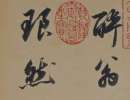 醉翁
琅然